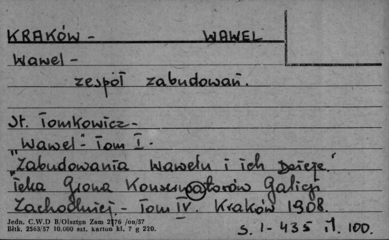 KRAKÓW - WAWEL
Wawel -
zespół zabudowań.
St. Tomkowicz -
"Wawel" - Tom I.
"Zabudowania Wawelu i ich Dzieje."
Teka Grona Konserwatorów Galicji
Zachodniej - Tom IV. Kraków 1908.
Jedn. C.W.D B/Olsztyn Zam 2176 /on/57
Błtk. 2563/57 10.000 szt. karton kl. 7 g 220.
s. 1-435 il. 100.